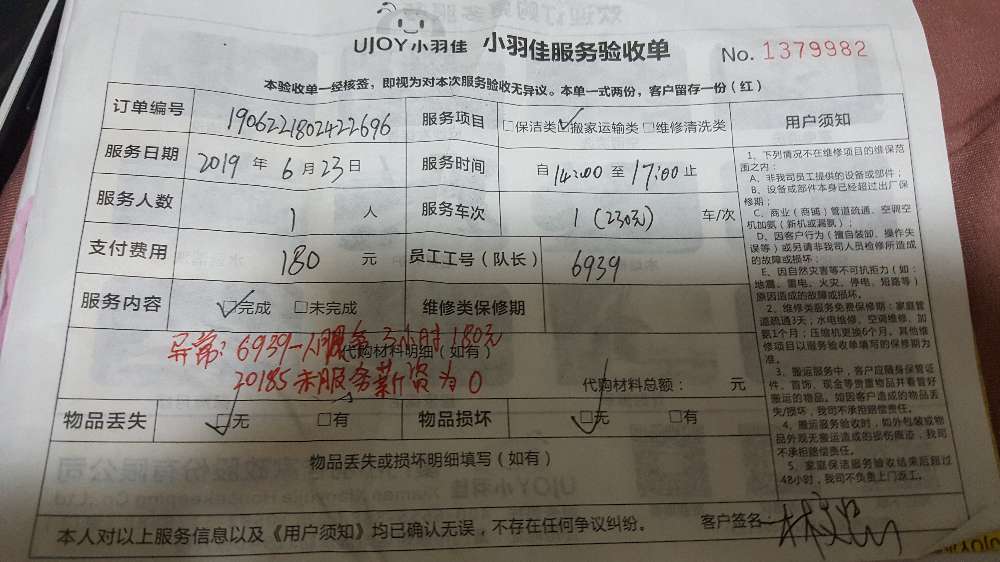 UJOY小羽佳 小羽佳服务验收单 No. 1379982
本验收单一经核签，即视为对本次服务验收无异议。本单一式两份，客户留存一份（红）
订单编号 1906221802422696 服务项目 □保洁类 ☑搬家运输类 □维修清洗类
服务日期 2019 年 6 月 23 日 服务时间 自 14:00 至 17:00 止
服务人数 1 人 服务车次 1 (230元) 车/次
支付费用 180 元 员工工号（队长） 6939
服务内容 ☑完成 □未完成 维修类保修期
异常：6939一人服务 3小时180元
代购材料明细（如有）
20185未服务薪资为0
代购材料总额： 元
物品丢失 ☑无 □有 物品损坏 ☑无 □有
物品丢失或损坏明细填写（如有）
本人对以上服务信息以及《用户须知》均已确认无误，不存在任何争议纠纷。 客户签名
用户须知
1、下列情况不在维修项目的维保范
围之内：
A、非我司员工提供的设备或部件；
B、设备或部件本身已经超过出厂保
修期；
C、商业（商铺）管道疏通、空调空
机加氨（新机或漏氨）；
D、因客户行为（擅自装卸、操作失
误等）或另请非我司人员检修所造成
的故障或损坏；
E、因自然灾害等不可抗拒力（如：
地震、雷电、火灾、停电、短路等）
原因造成的故障或损坏。
2、维修类服务免费保修期：家庭管
道疏通3天；水电维修、空调维修、加
氨1个月；压缩机更换6个月。其他维
修项目以服务验收单填写的保修期为
准。
3、搬运服务中，客户应随身保管证
件、首饰、现金等贵重物品并看管好
搬运的物品。如因客户造成的物品丢
失/损坏，我司不承担赔偿责任。
4、搬运服务验收时，如外包装或物
品外观无搬运造成的损伤痕迹，我司
不承担赔偿责任。
5、家庭保洁服务验收结束后超过
48小时，我司不负责上门返工。